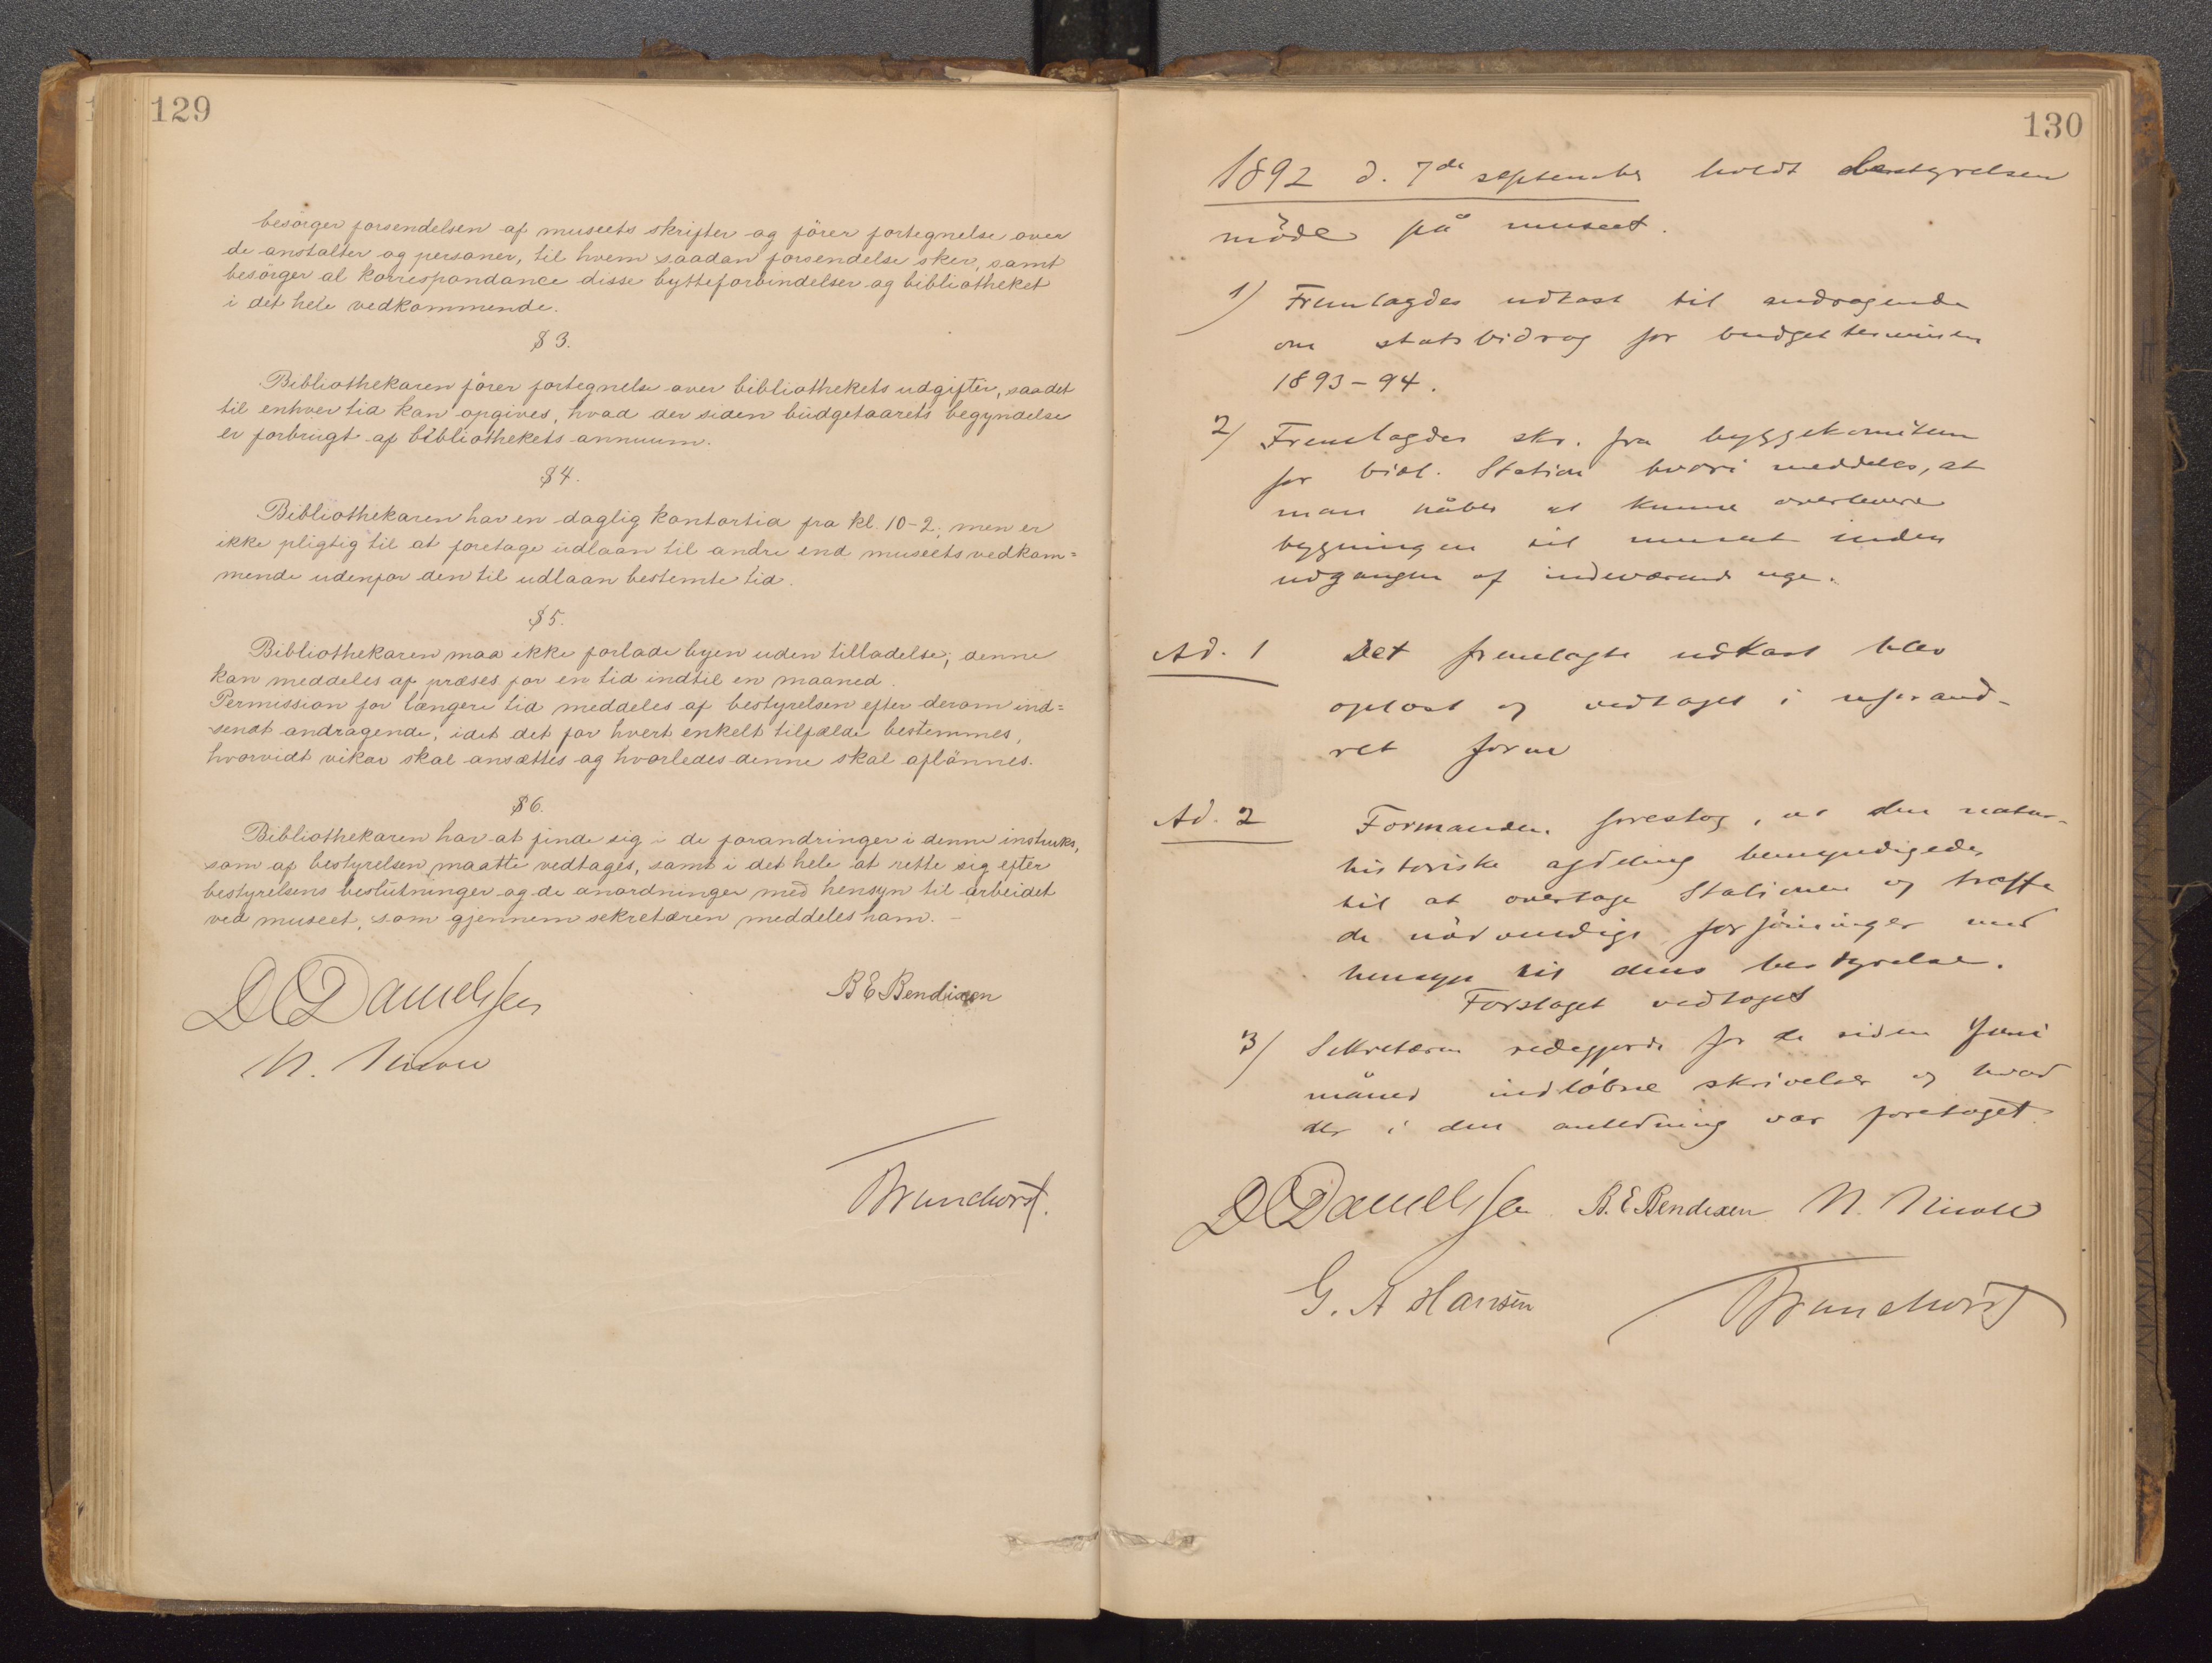 129
besörger forsendelsen af museets skrifter og förer fortegnelse over
de anstalter og personer, til hvem saadan forsendelse sker, samt
besörger al korrespondance disse bytteforbindelser og bibliotheket
i det hele vedkommende.
§ 3.
Bibliothekaren förer fortegnelse over bibliothekets udgifter, saa det
til enhver tid kan opgives, hvad der siden budgetaarets begyndelse
er forbrugt af bibliothekets annuum.
§ 4.
Bibliothekaren har en daglig kontortid fra kl. 10-2; men er
ikke pligtig til at foretage udlaan til andre end museets vedkom=
mende udenfor den til udlaan bestemte tid.
§ 5.
Bibliothekaren maa ikke forlade byen uden tilladelse; denne
kan meddeles af præses for en tid indtil en maaned.
Permission for længere tid meddeles af bestyrelsen efter derom ind=
sendt andragende, idet det for hvert enkelt tilfælde bestemmes,
hvorvidt vikar skal ansættes og hvorledes denne skal aflönnes.
§ 6.
Bibliothekaren har at finde sig i de forandringer i denne instruks,
som af bestyrelsen maatte vedtages, samt i det hele at rette sig efter
bestyrelsens beslutninger og de anordninger med hensyn til arbeidet
ved museet, som gjennem sekretæren meddeles ham. -
D C Danielssen
B E Bendixen
N. Nicoll
Brunchorst.
130
1892 d. 7de september holdt bestyrelsen
möde på museet.
1) Fremlagdes udkast til andragende
om statsbidrag for budgetterminen
1893-94.
2) Fremlagdes skr. fra byggekomiteen
for biol. Station hvori meddeles, at
man håber at kunne overlevere
bygningen til museet inden
udgangen af indeværende uge.
Ad. 1 Det fremlagte udkast blev
oplæst og vedtaget i uforand-
ret form
Ad. 2 Formanden foreslog, at den natur-
historiske afdeling bemyndigedes
til at overtage Stationen og træffe
de nödvendige forföininger med
hensyn til dens bestyrelse.
Forslaget vedtaget
3) Sekretæren redegjorde for de siden Juni
måned indlöbne skrivelser og hvad
der i den anledning var foretaget.
D C Danielssen B. E. Bendixen N. Nicoll
G. A Hansen Brunchorst